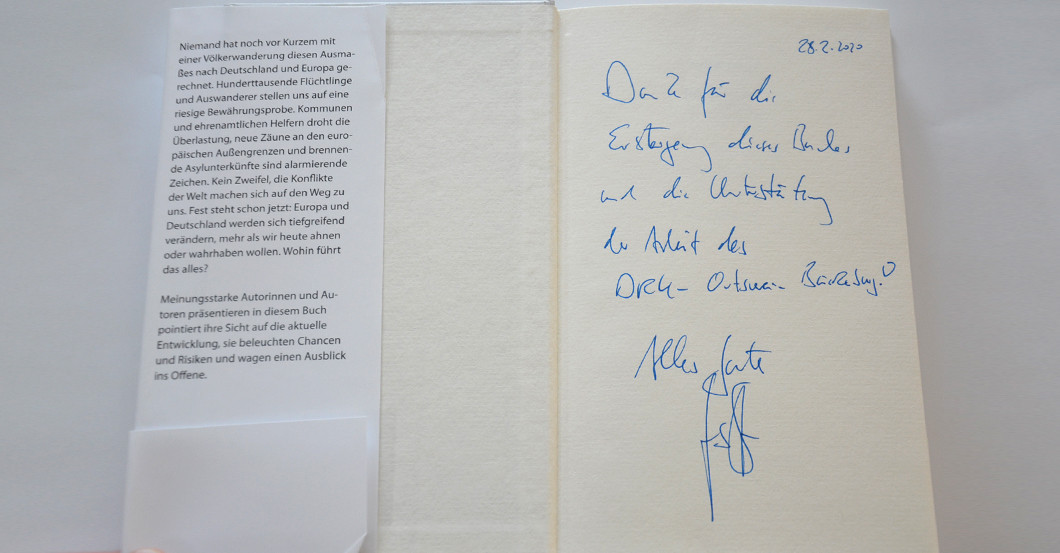 Niemand hat noch vor Kurzem mit
einer Völkerwanderung diesen Ausma-
ßes nach Deutschland und Europa ge-
rechnet. Hunderttausende Flüchtlinge
und Auswanderer stellen uns auf eine
riesige Bewährungsprobe. Kommunen
und ehrenamtlichen Helfern droht die
Überlastung, neue Zäune an den euro-
päischen Außengrenzen und brennen-
de Asylunterkünfte sind alarmierende
Zeichen. Kein Zweifel, die Konflikte
der Welt machen sich auf den Weg zu
uns. Fest steht schon jetzt: Europa und
Deutschland werden sich tiefgreifend
verändern, mehr als wir heute ahnen
oder wahrhaben wollen. Wohin führt
das alles?
Meinungsstarke Autorinnen und Au-
toren präsentieren in diesem Buch
pointiert ihre Sicht auf die aktuelle
Entwicklung, sie beleuchten Chancen
und Risiken und wagen einen Ausblick
ins Offene.
28.2.2020
Dank für die
Ersteigerung dieses Buches
und die Unterstützung
der Arbeit des
DRK- Ortsverein
Alles Gute